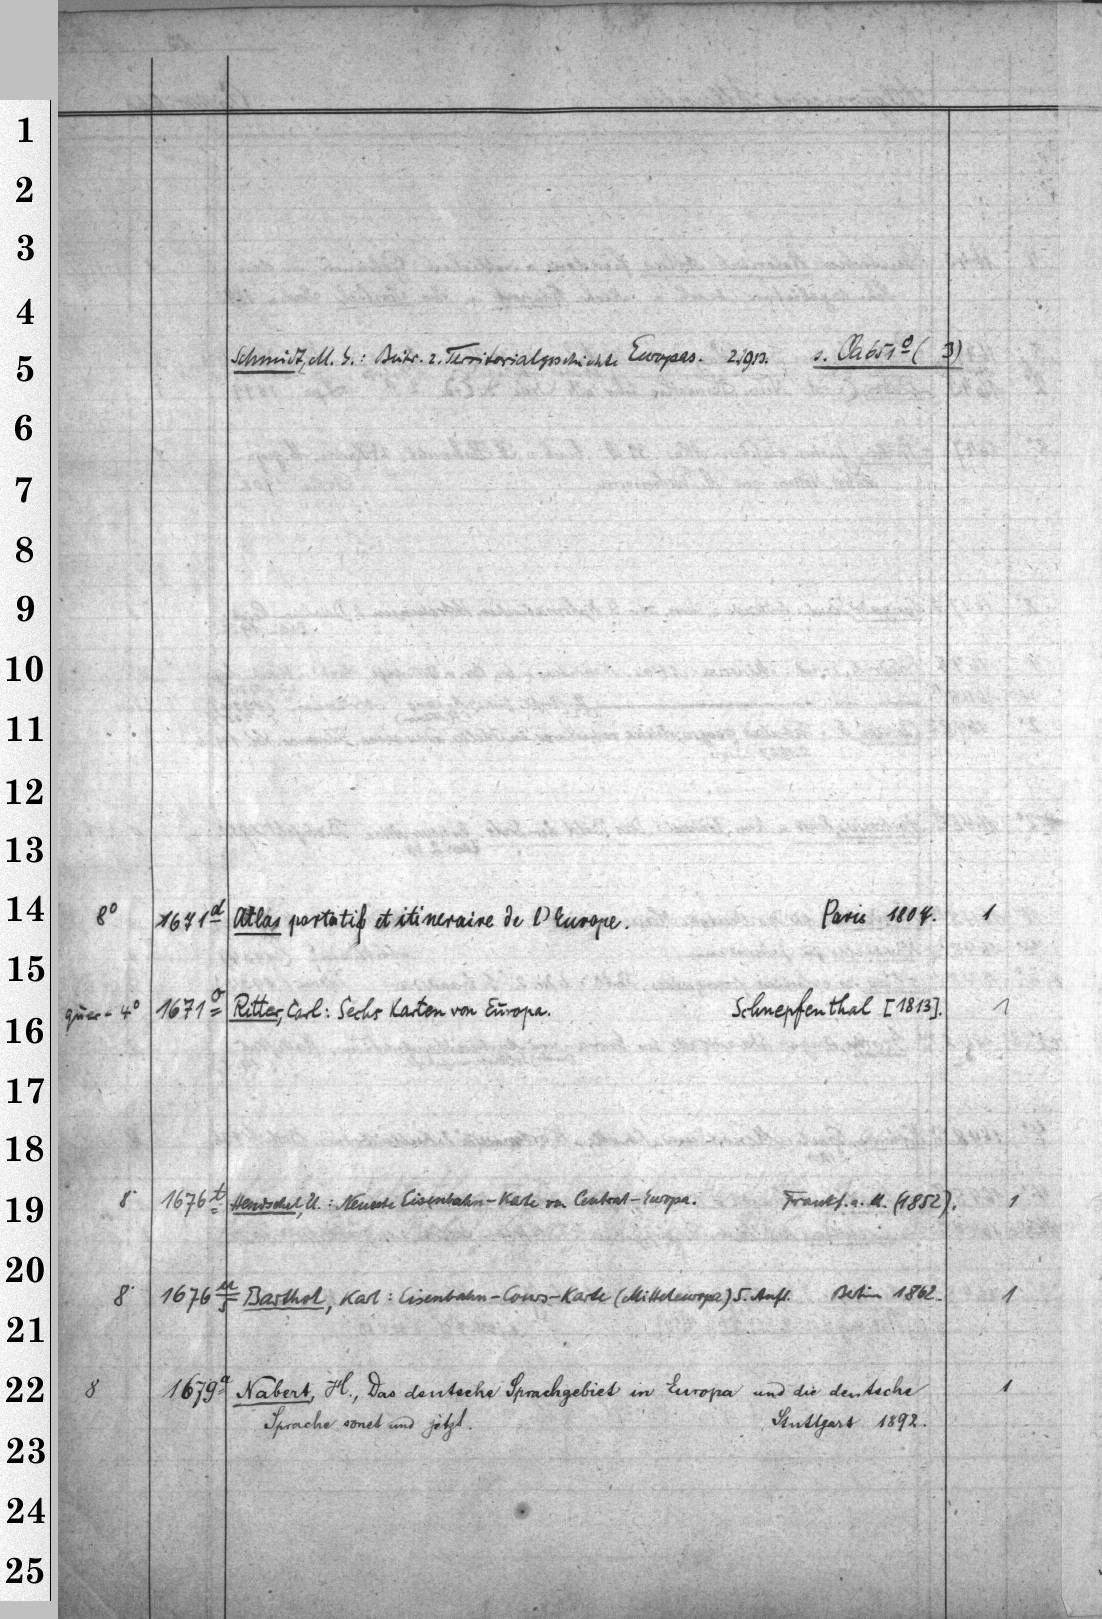 1
2
3
4
Schmidt, M. G.: Beitr. z. Territorialgeschichte Europas. s. Oa 651 o (3)
5
6
7
8
9
10
11
12
13
14 8° 1671 d Atlas portatif et itineraire de l'Europe. Paris 1807. 1
15
quer-4° 1671 o Ritter, Carl: Sechs Karten von Europa. Schnepfenthal [1813]. 1
16
17
18
19 8° 1676 t Hendschel, U.: Neueste Eisenbahn-Karte von Central-Europa. Frankf. a. M. (1852). 1
20
8° 1676 Barthol, Karl: Eisenbahn-Cours-Karte (Mitteleuropa) 5. Aufl. Berlin 1862. 1
21
22 8 1679 a Nabert, H., Das deutsche Sprachgebiet in Europa und die deutsche 1
Sprache sonst und jetzt. Stuttgart 1892.
23
24
25